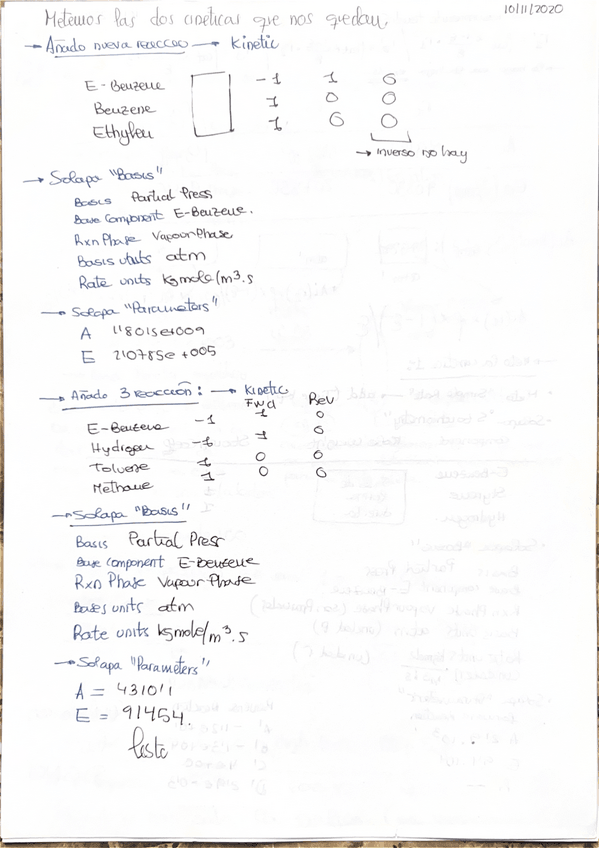 10/11/2020
Metemos las dos cinéticas que nos quedan.
→ Añado nueva reacción → Kinetic
E-Benzene -1 1 0
Benzene 1 0 0
Ethylen 1 0 0
→ inverso no hay
→ Solapa "Basis"
Basis Partial Press
Base Component E-Benzene.
Rxn Phase Vapour Phase
Basis units atm
Rate units kgmole/m³.s
→ Solapa "Parameters"
A 1'8015e+009
E 2'0785e+005
→ Añado 3 reacción: → Kinetic
Fwd Rev
E-Benzene -1 1 0
Hydrogen -1 1 0
Toluene 1 0 0
Methane 1 0 0
→ Solapa "Basis"
Basis Partial Press
Base component E-Benzene
Rxn Phase Vapour Phase
Bases units atm
Rate units kgmole/m³.s
→ Solapa "Parameters"
A = 43101'1
E = 91454.
listo